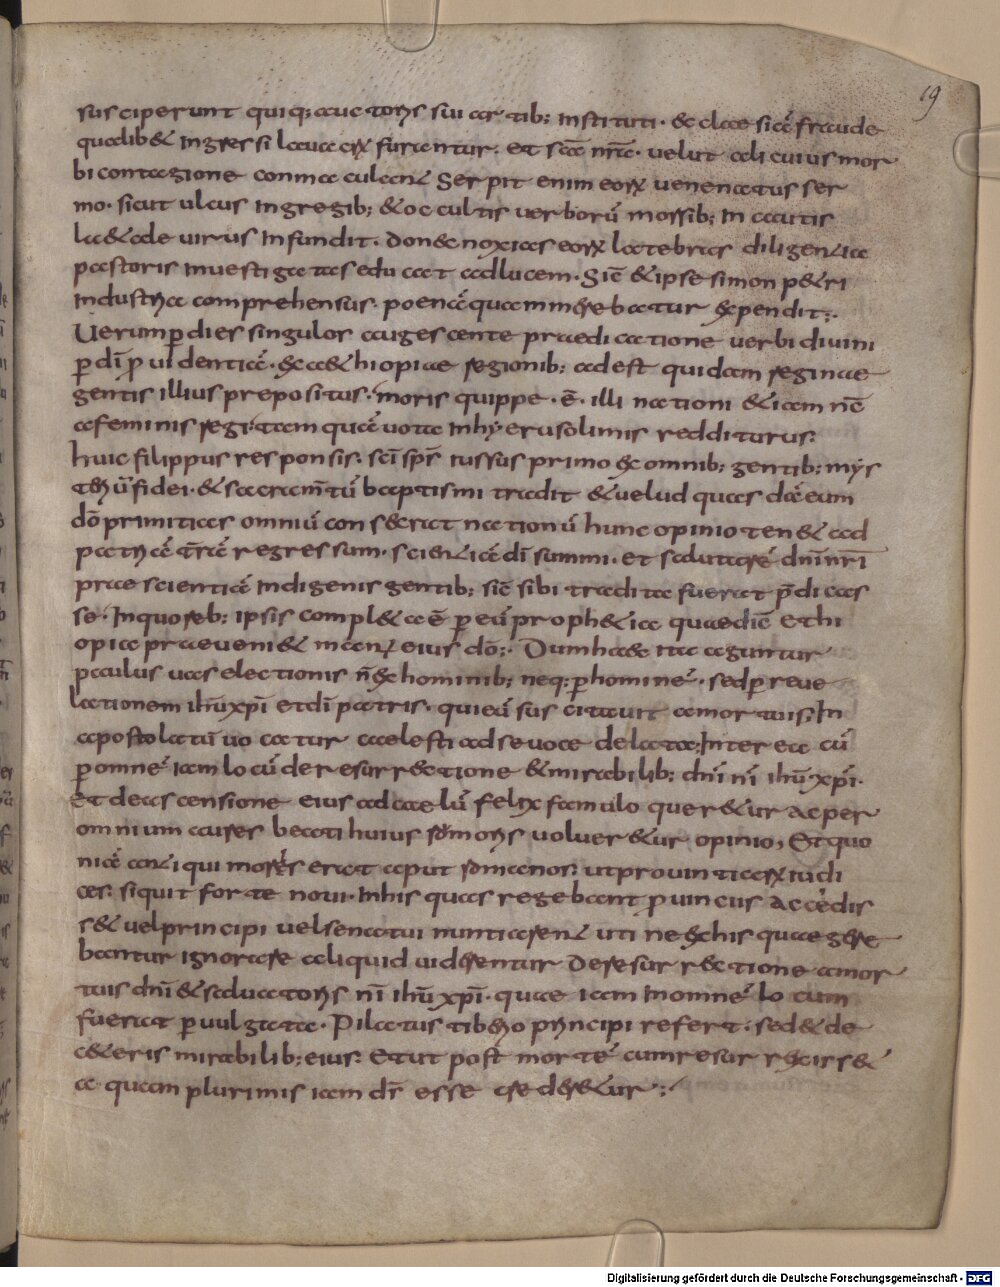 19
susciperunt quiq; auctoris sui artib; instituti · & clam sicē fraude
quælib& ingressi lauacrū furantur · et scāe nrāe · uelut alicuius mor
bi contagione conmaculant Serpit enim eorū uenenatus ser
mo · sicut ulcus In gregib; & occultis uerborū morsib; In cautis
læ&ale uirus Infundit · donec noxias eorū latebras diligentia
pastoris inuestigatas educat ad lucem · Sic & ipse simon p&ri
Industria comprehensus · poenā quam merebatur expendit;·
Uerum p dies singulos augescente prædicatione uerbi diuini
p dī puidentiā · ex a&hiopiae regionib; adest quidam reginae
gentis illius prepositus · moris quippe · ē · illi nationi &iam nc̄
a feminis regi · tam quā uota Inhyerusolimis redditurus:
huic filippus responsis · scī spr̄ iussus primo ex omnib; gentib; mys
teriū fidei · & sacramtū baptismi tradit & uelud quasdā eam
dō primitias omniū consecrat nationū hunc opinio ten& ad
patriā trāe regressum · scientiā dī summi · et salutare dnī nrī
præscientiā Indigenis gentib; sic sibi tradita fuerat p̄dicas
se · Inquo reb; ipsis compl&a ē p eū proph&ia quæ dic̄ Ethi
opia præueni& manus eius dō;· Dum hæc ita aguntur
paulus uas electionis n̄ ex hominib; neq; p hominē · sed p reue
lationem ihū xpī et dī patris · qui eū suscitauit a mortuis; In
apostolatū uocatur caelesti ad se uoce delata; Interea cū
p omnē iam locū de resurrectione & mirabilib; dnī nī ihū xpī ·
Et de ascensione eius ad caelū felix famulo querer&ur Ac per
omnium aures beati huius sermonis uoluer&ur opinio, Et quo
niā antiqui moris erat aput romanos: ut prouintiarū iudi
ces · siquit forte noui · In his quas regebant puinciis Accedis
s& uel principi uel senatui nuntiarent uti ne ex his quae gere
bantur ignorare aliquid uiderentur De resurrectione a mor
tuis dnī & saluatoris nī ihū xpī · quae iam In omnē locum
fuerat p uulgata · Pilatus tiberio principi refert · sed & de
c&eris mirabilib; eius · Et ut post mortē cum resurrexirs&
a quam plurimis iam dr̄ esse crederetur:·
Digitalisierung gefördert durch die Deutsche Forschungsgemeinschaft - DFG